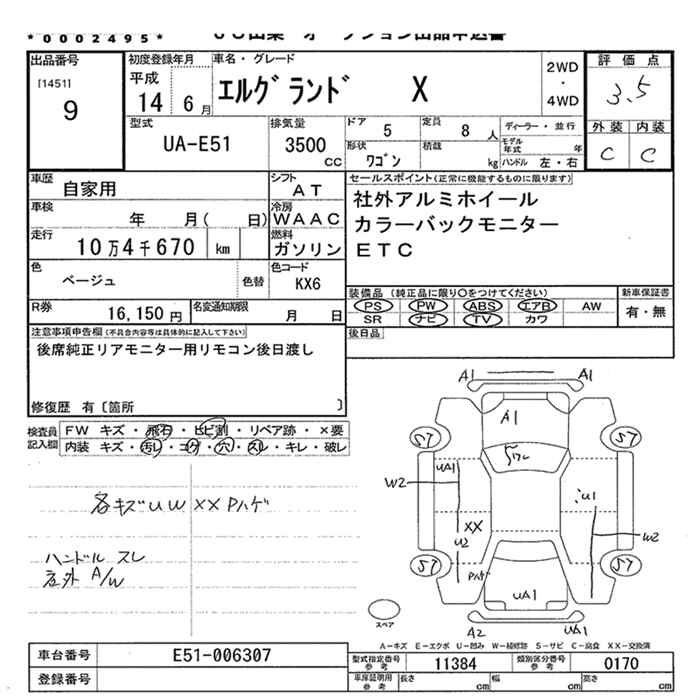 *0002495*
出品番号
[1451]
9
初度登録年月
平成
14 6 月
車名・グレード
エルグランド X
2WD
・
4WD
評価点
3.5
外装 内装
C C
型式
UA-E51
排気量
3500
CC
ドア
5
定員
8 人
ディーラー・並行
形状
ワゴン
積載
kg
モデル年式
年
ハンドル 左・右
車歴
自家用
シフト
AT
セールスポイント(正常に機能するものに限ります)
社外アルミホイール
カラーバックモニター
ETC
車検
年 月( 日)
冷房
WAAC
走行
10万4千670 km
燃料
ガソリン
色
ベージュ
色替
色コード
KX6
装備品(純正品に限り○をつけてください)
PS PW ABS エアB AW
SR ナビ TV カワ
新車保証書
有・無
R券
16,150円
名変通知期限
月 日
後日品
注意事項申告欄(不具合内容等は具体的に記入して下さい)
後席純正リアモニター用リモコン後日渡し
修復歴 有〔箇所 〕
検査員
記入欄
FW キズ・飛石・ヒビ割・リペア跡・×要
内装 キズ・汚レ・コゲ・穴・スレ・キレ・破レ
各キズUW XX Pハゲ
ハンドル スレ
社外 A/W
A1 A1
A1
S7 S7
UA1
W2
U1
XX
U2
W2
S7 S7
Pハゲ
UA1
A2 UA1
スペア
A-キズ E-エクボ U-凹み W-補修跡 S-サビ C-腐食 XX-交換済
車台番号
E51-006307
型式指定番号
参考
11384
類別区分番号
参考
0170
登録番号
車庫証明用
参考
長さ
cm
幅
cm
高さ
cm